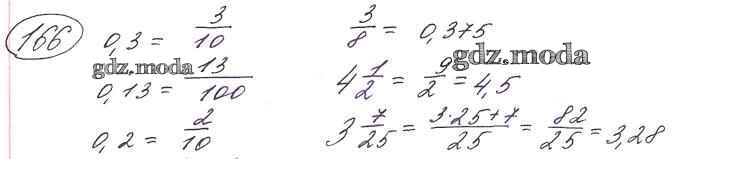 166
0,3 = 3/10
gdz.moda
0,13 = 13/100
0,2 = 2/10
3/8 = 0,375
gdz.moda
4 1/2 = 9/2 = 4,5
3 7/25 = 3·25+7/25 = 82/25 = 3,28